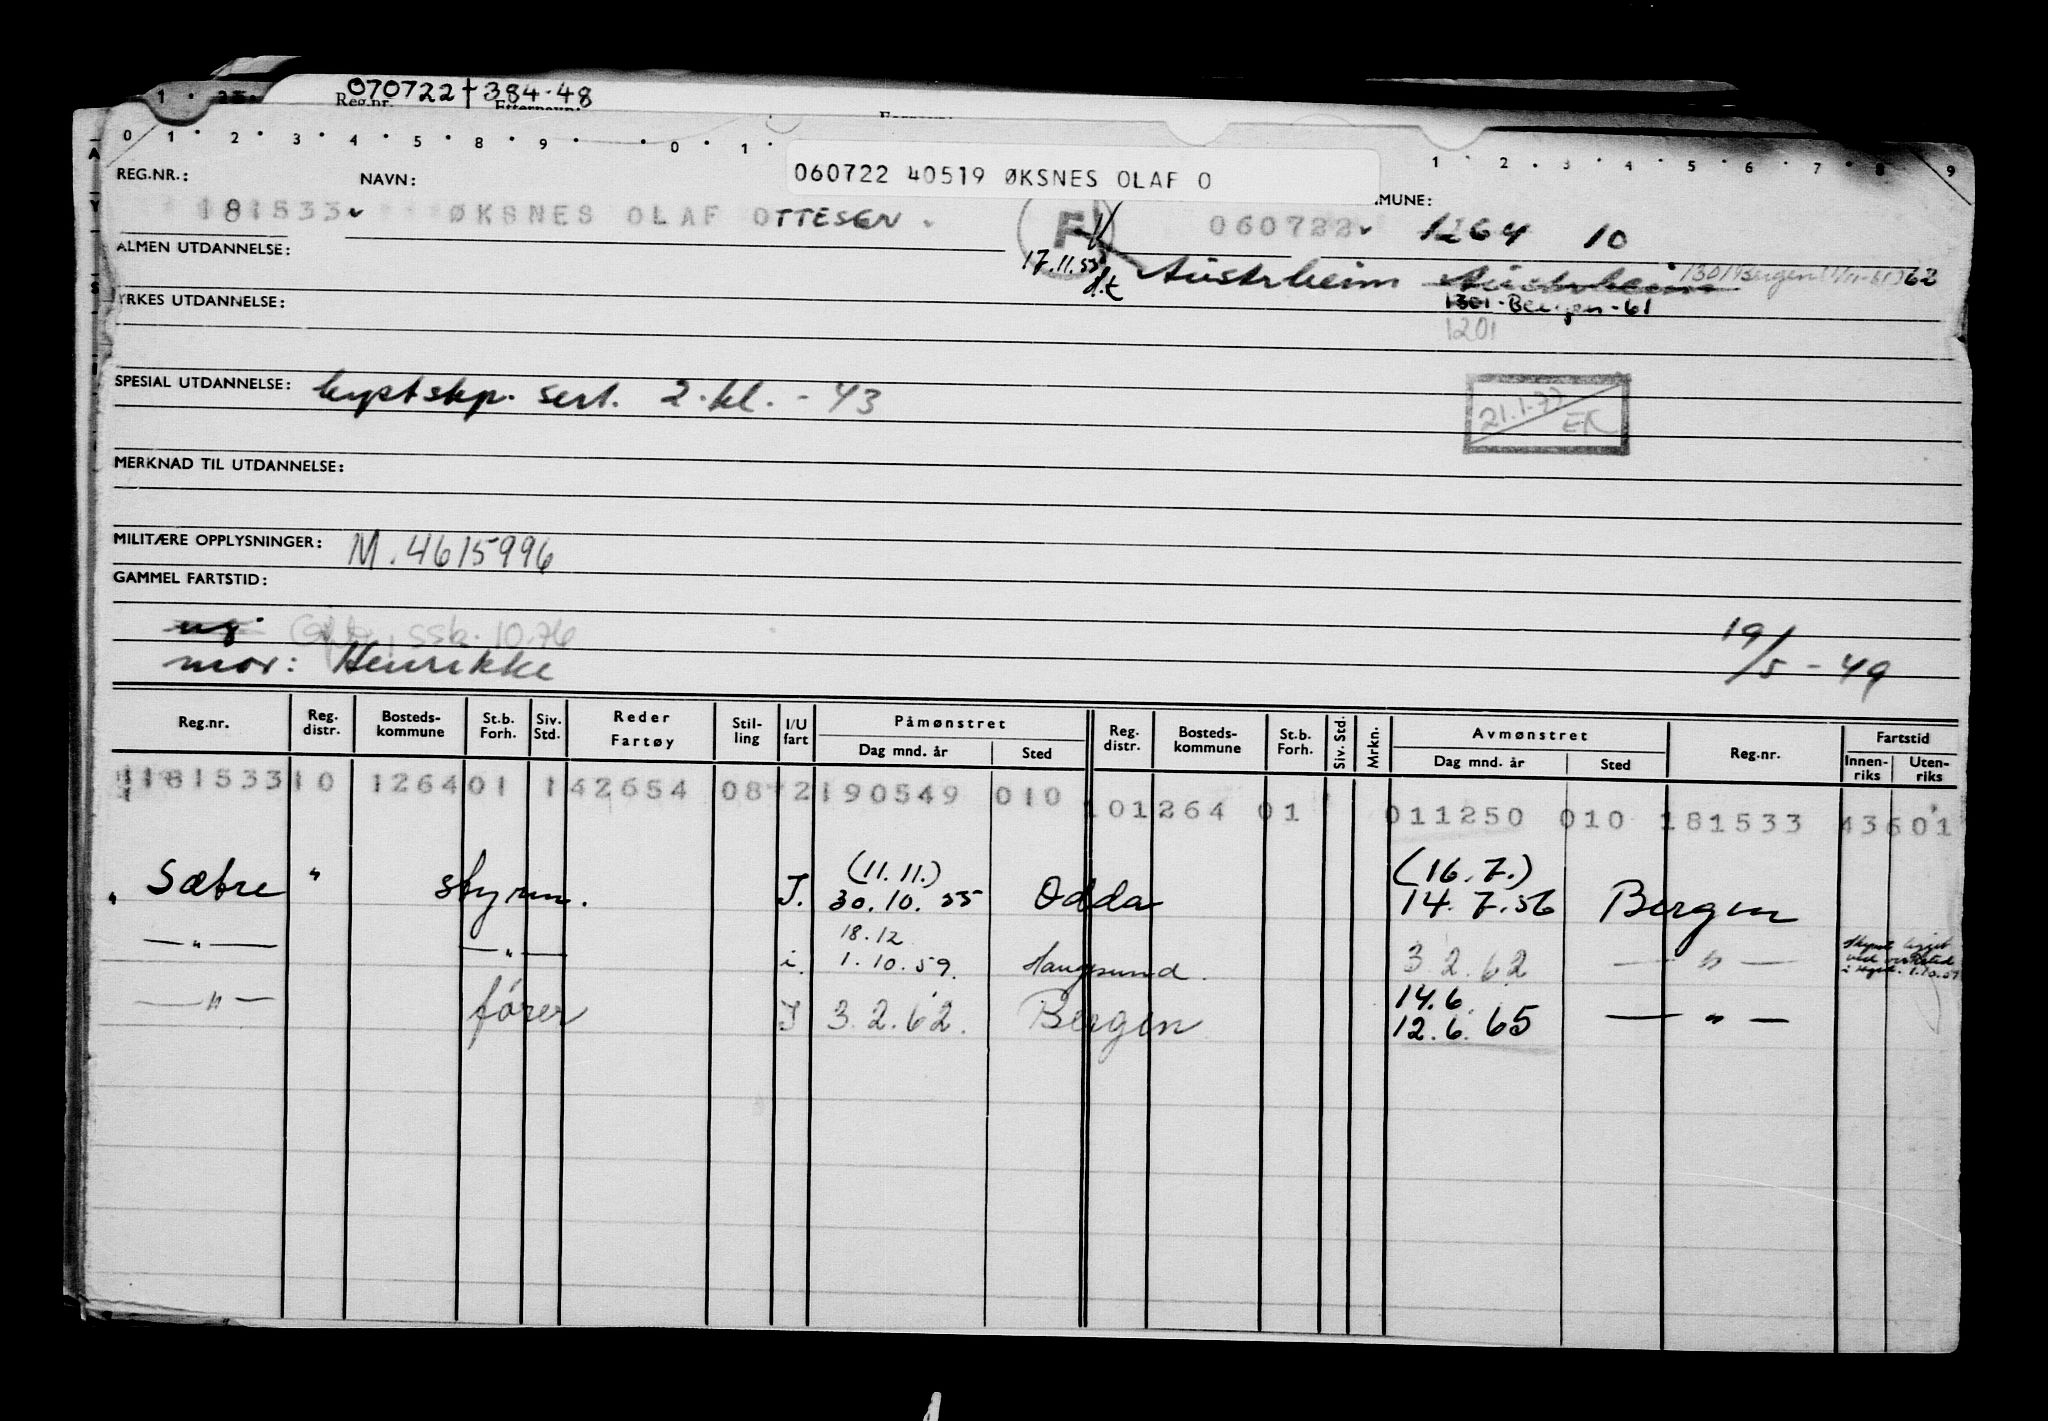 070722 + 384-48
Reg.nr. Etternavn:
0 1 2 3 4 5 8 9 0 1 1 2 3 4 5 6 7 8 9
REG.NR.: NAVN: 060722 40519 ØKSNES OLAF O MUNE:
181533 ØKSNES OLAF OTTESEN F 060722 1264 10
ALMEN UTDANNELSE: 17.11.53 Austrheim Austrheim 1301 Bergen 62
YRKES UTDANNELSE: 1301-Bergen-61
1201
SPESIAL UTDANNELSE: kystskp. sert. 2.kl. - 43 21.1.77 ER
MERKNAD TIL UTDANNELSE:
MILITÆRE OPPLYSNINGER: M. 4615996
GAMMEL FARTSTID:
ug. ssb. 10.76 19/5 - 49
mor: Henrikke
Reg.nr. Reg. distr. Bosteds-kommune St.b. Forh. Siv. Std. Reder Fartøy Stil-ling I/U fart Påmønstret Dag mnd. år Sted Reg. distr. Bosteds-kommune St.b. Forh. Siv. Std. Mrkn. Avmønstret Dag mnd. år Sted Reg.nr. Fartstid Innen-riks Uten-riks
181533 10 1264 01 1 42654 08 2 190549 010 101264 01 011250 010 181533 43601
(11.11.) (16.7.)
" Sæbre " styrm. I. 30.10.55 Odda 14.7.56 Bergen
18.12
— " — — " — i. 1.10.59. Haugesund. 3.2.62 — " —
14.6.
— " — fører I 3.2.62. Bergen 12.6.65 — " —